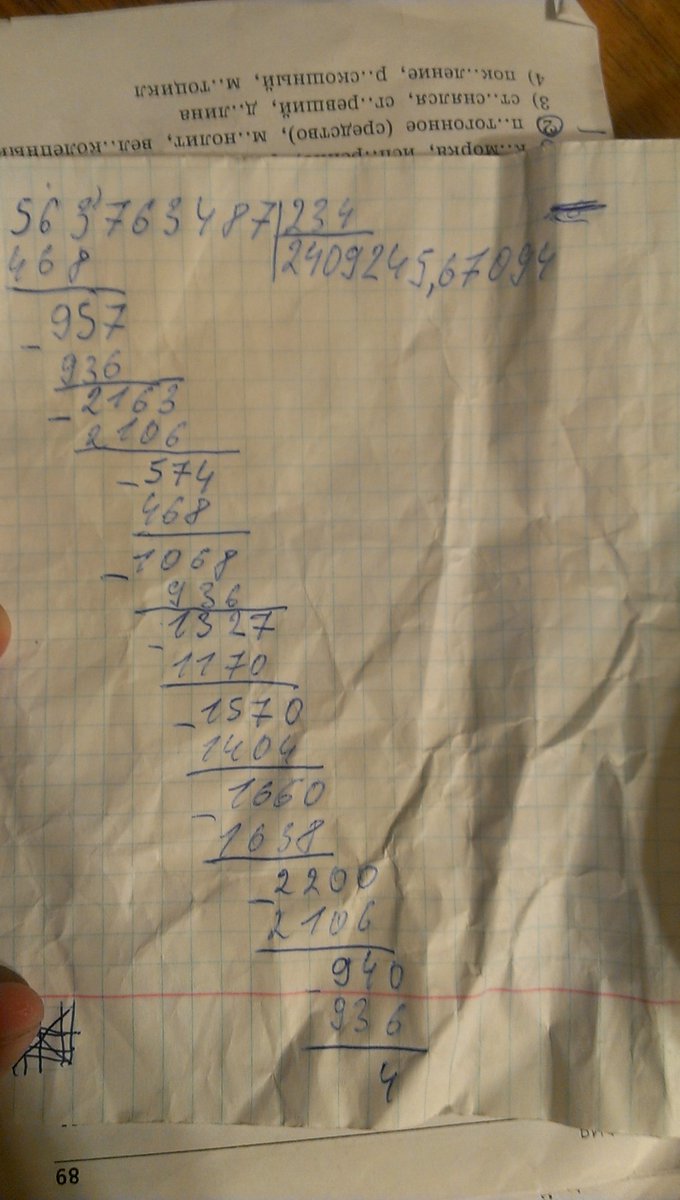 4) пок..ление, р..скошный, м..тоцикл
3) ст..снялся, сг..ревший, д..лина
2) п..тогонное (средство), м..нолит, вел..колепный
563763487 234
468 2409245,67094
- 957
936
- 2163
2106
- 574
468
- 1068
936
- 1327
1170
- 1570
1404
- 1660
1638
- 2200
2106
- 940
936
4
68